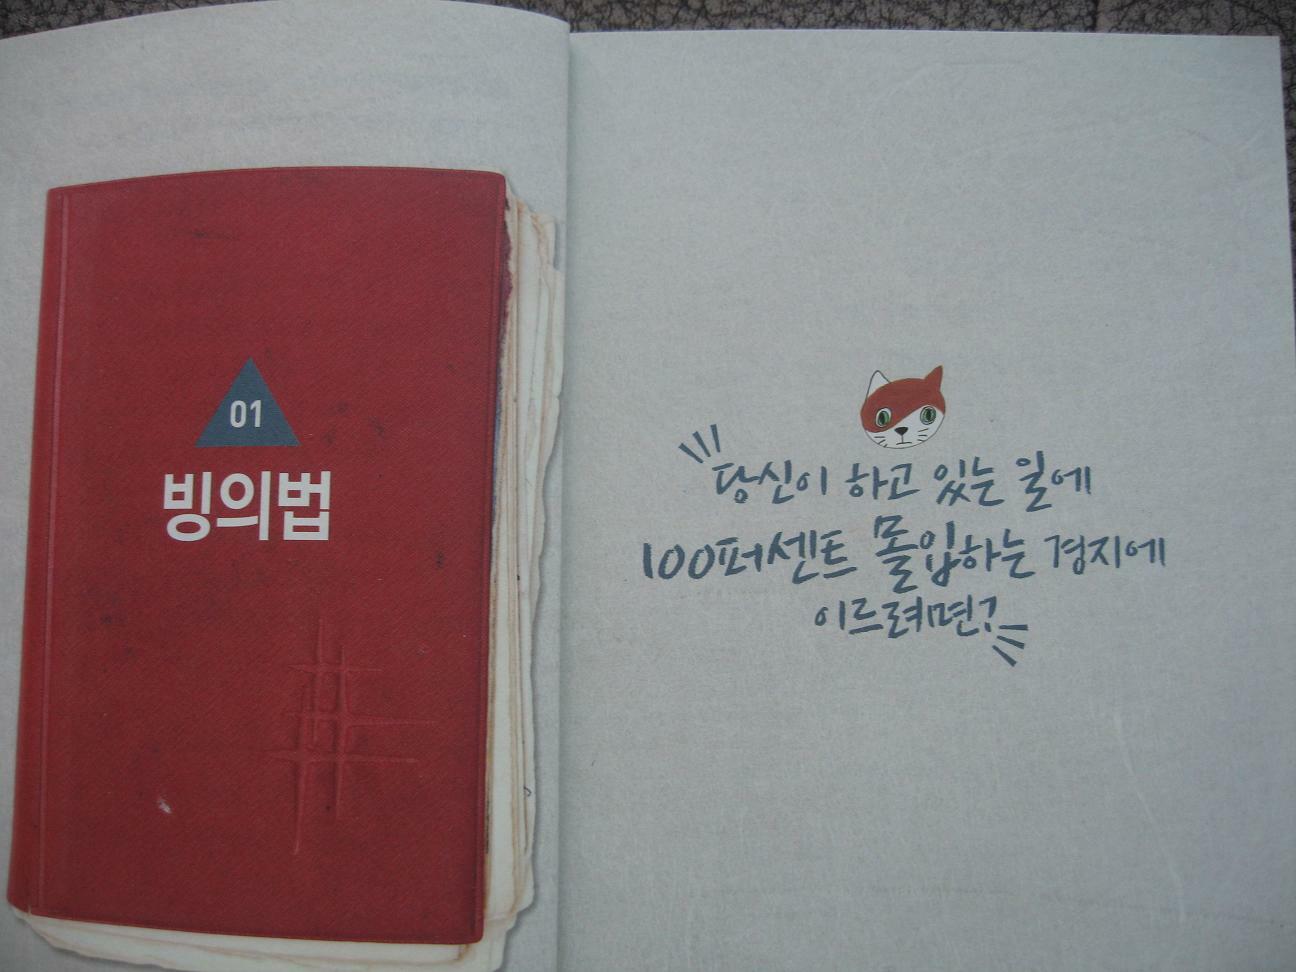 01
빙의법
당신이 하고 있는 일에
100퍼센트 몰입하는 경지에
이르려면?